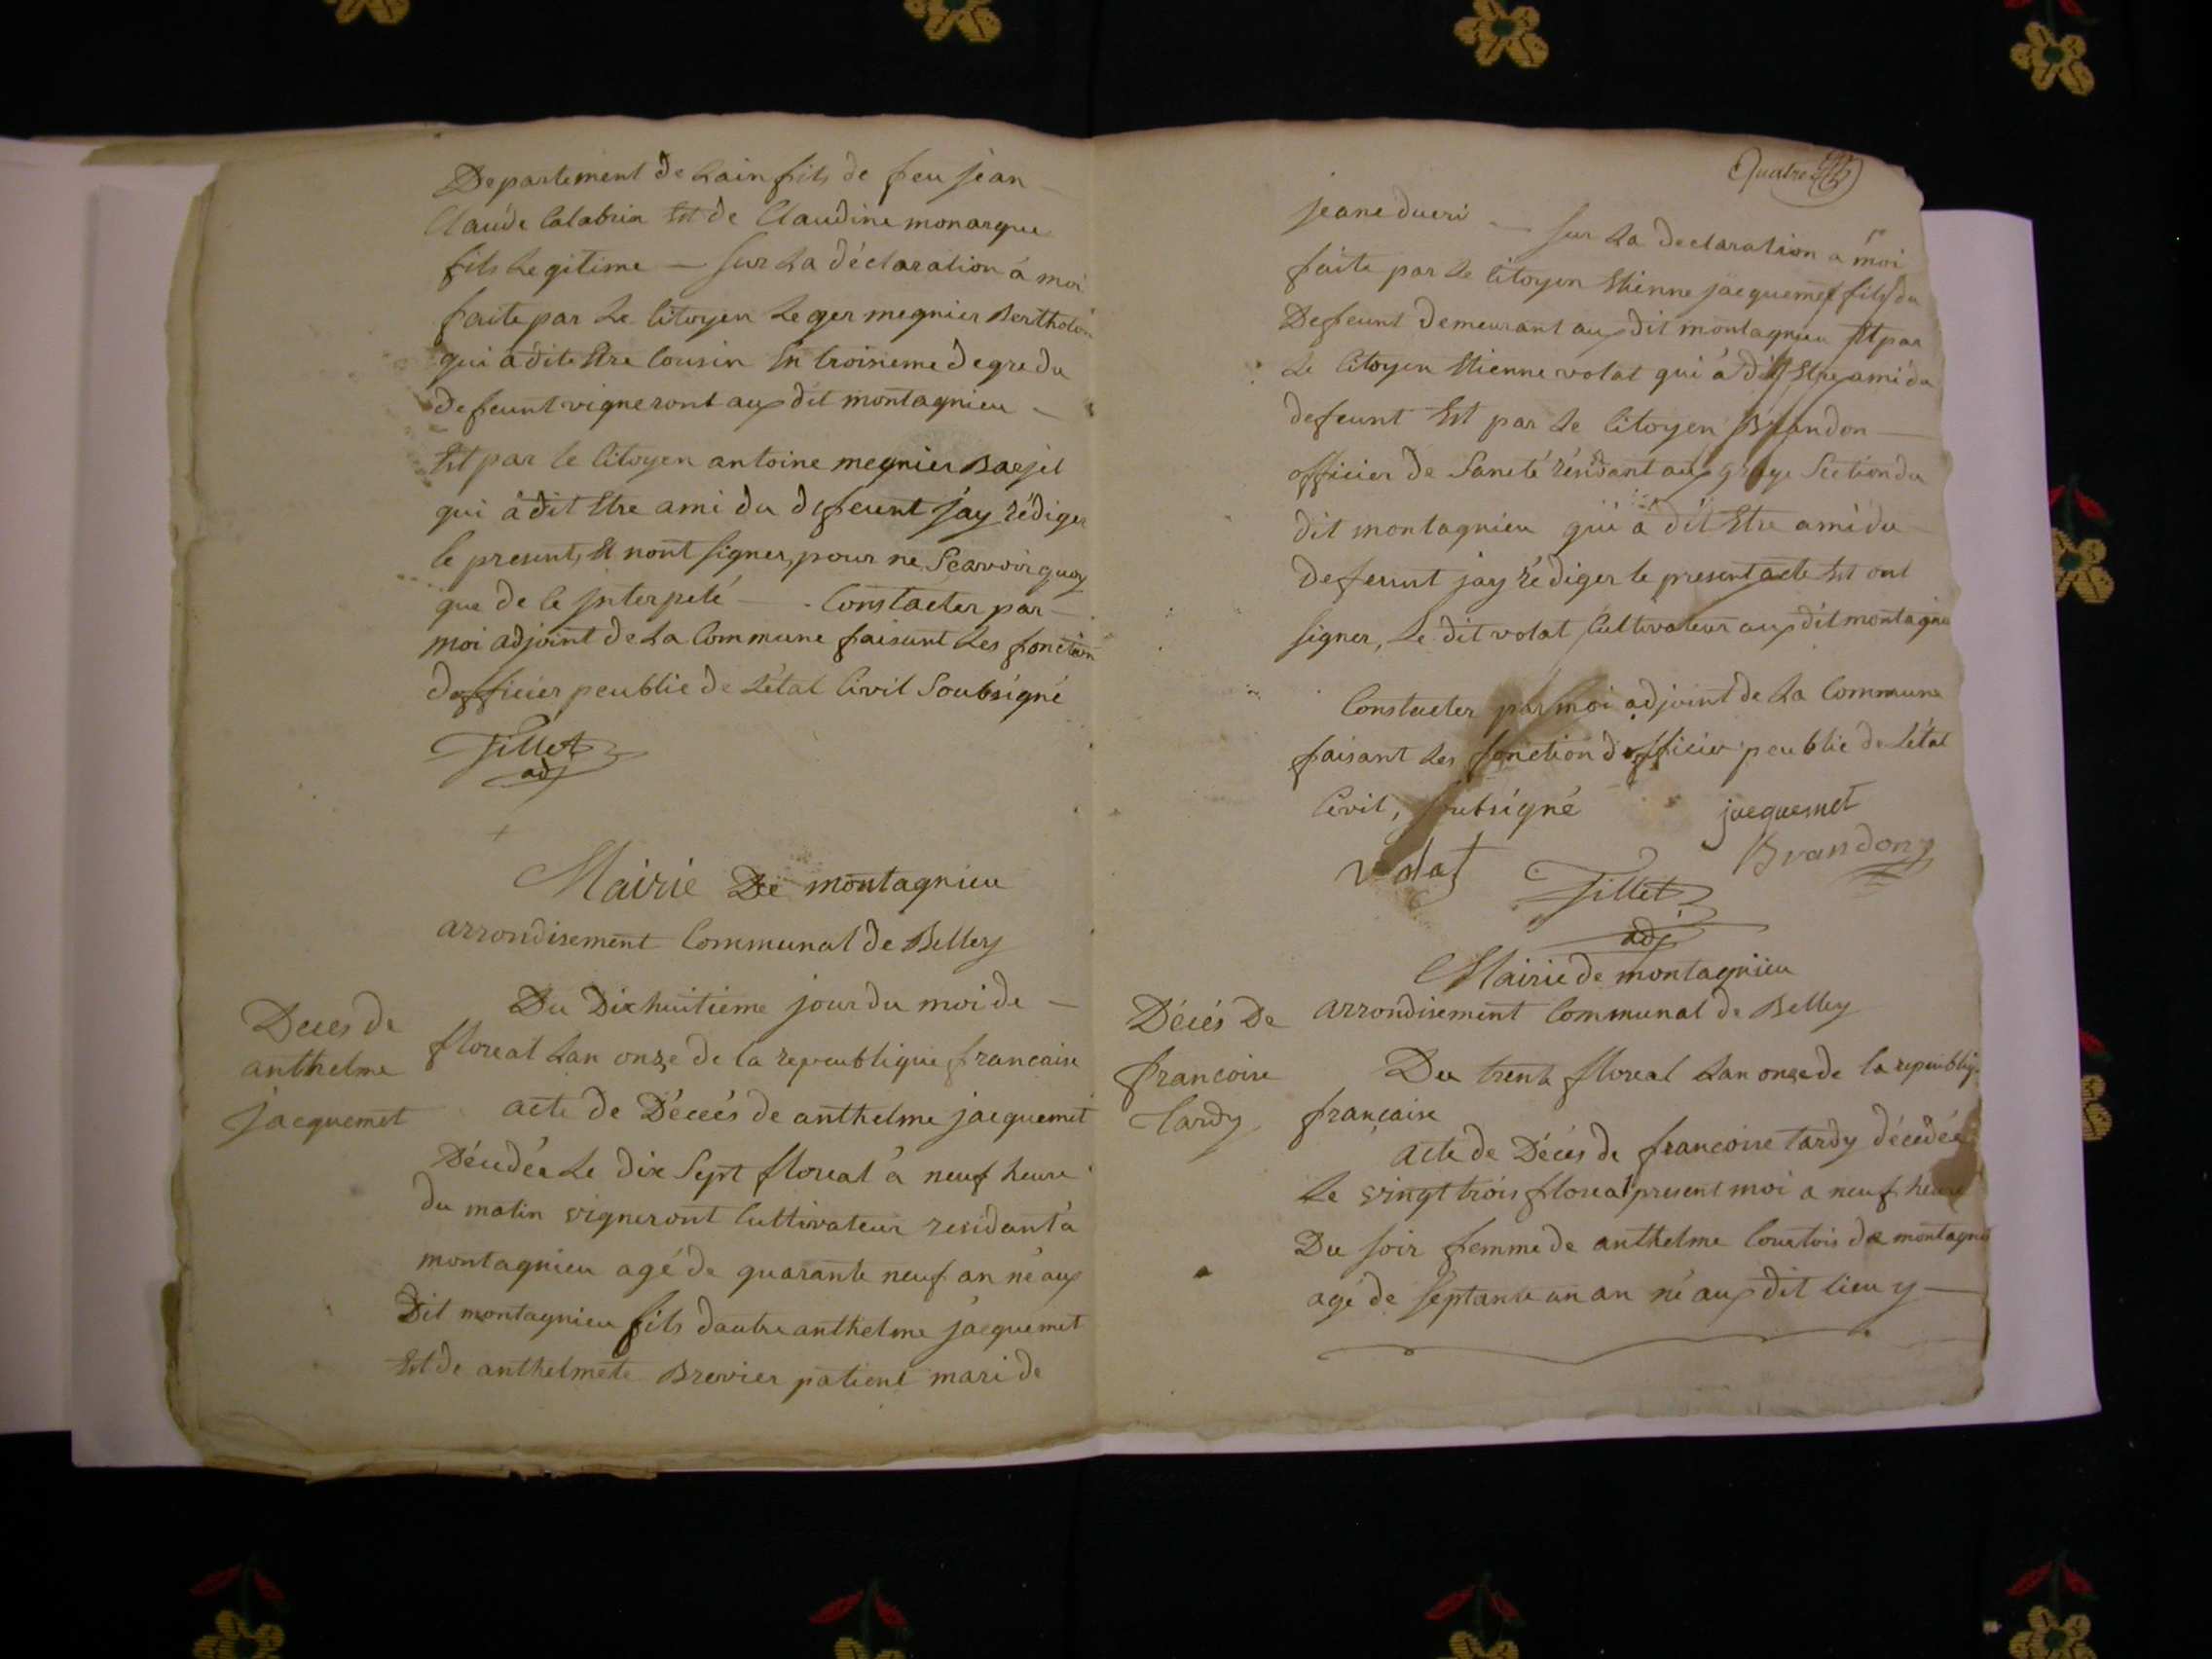 Departement de Lain fils de feu jean
Claude Calabrin Et de Claudine monarque
fils Legitime — sur La déclaration à moi
faite par Le Citoyen Leger megnier Bertholon
qui à dite Etre Cousin En troisieme degre du
defeunt vigneront aux dit montagnieu —
Et par le Citoyen antoine megnier Barjel
qui à dit Etre ami du defeunt j'ay rédiger
le present, Et nont signer, pour ne Scavoir quoy
que de le jnterpelé — Constacter par
moi adjoint de La Commune faisant Les fonction
dofficier peublic de Létat Civil Soubsigné
Tillet
adj
Mairie De montagnieu
arrondisement Communal de Belley
Du Dix huitiéme jour du moi de —
floreal Lan onze de la repeublique francaise
Deces de
anthelme
jacquemet
acte de Décés de anthelme jacquemet
Décedée Le dix Sept floreal à neuf heure
du matin vigneront Cultivateur residant à
montagnieu agé de quarante neuf an né aux
Dit montagnieu fils dautre anthelme jacquemet
Et de anthelmete Brevier patient mari de
Quatre
jeane dueri — sur La declaration a moi
faite par Le Citoyen Etienne jacquemet fils du
Defeunt demeurant aux dit montagnieu Et par
Le Citoyen Etienne volat qui à dit Etre ami du
defeunt Et par Le Citoyen Brandon —
officier de Santé résidant aux graye Section du
dit montagnieu qui à dit Etre ami du
Defeunt jay rédiger le present acte Et ont
signer, Le dit volat Cultivateur aux dit montagnieu
Constacter par moi adjoint de La Commune
faisant Les fonction dofficier peublic de Létat
Civil, subsigné
jacquemet
volat
Brandon
Tillet
adj
Mairie de montagnieu
arrondisement Communal de Belley
Décés De
francoise
tardy
Du trente floreal Lan onze de la repeubliq
française
acte de Décés de francoise tardy décédée
Le vingt trois floreal present moi a neuf heure
Du soir femme de anthelme Courtois de montagnie
agé de septante un an né aux dit lieu y —